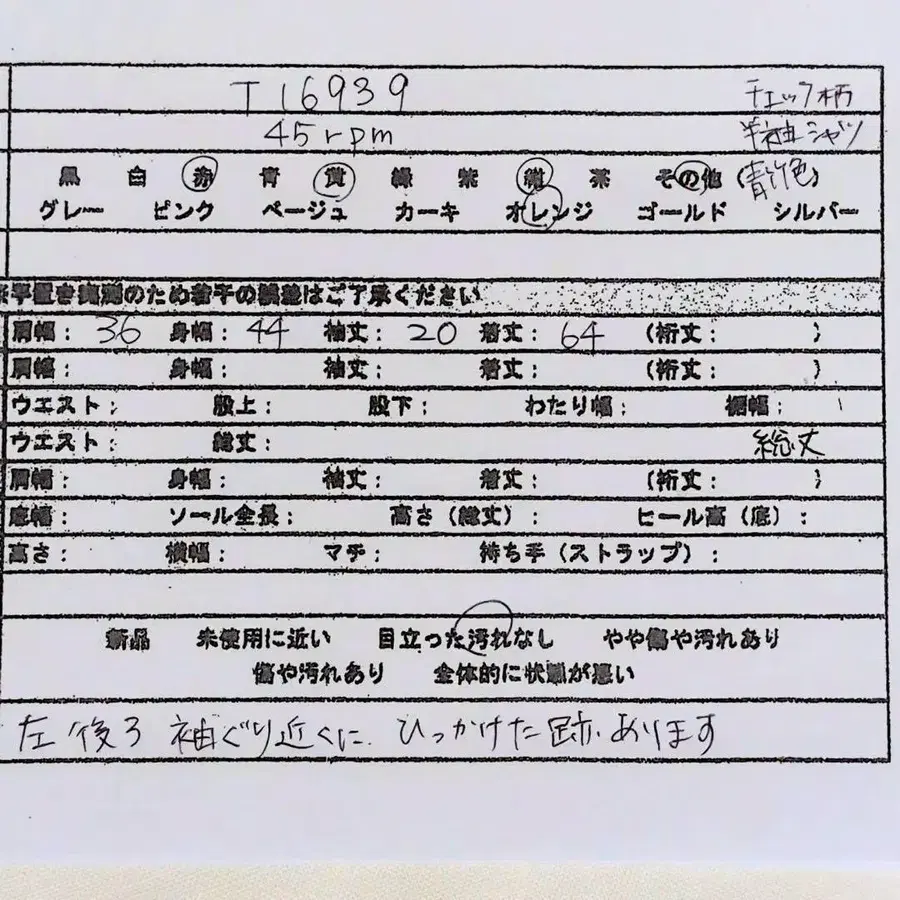 T16939 チェック柄
45rpm 半袖シャツ
黒 白 赤 青 黄 緑 紫 紺 茶 その他 (青竹色)
グレー ピンク ベージュ カーキ オレンジ ゴールド シルバー
※平置き実測のため若干の誤差はご了承ください
肩幅: 36 身幅: 44 袖丈: 20 着丈: 64 (裄丈: )
肩幅: 身幅: 袖丈: 着丈: (裄丈: )
ウエスト: 股上: 股下: わたり幅: 裾幅:
ウエスト: 総丈: 総丈
肩幅: 身幅: 袖丈: 着丈: (裄丈: )
底幅: ソール全長: 高さ(総丈): ヒール高(底):
高さ: 横幅: マチ: 持ち手(ストラップ):
新品 未使用に近い 目立った汚れなし やや傷や汚れあり
傷や汚れあり 全体的に状態が悪い
左後ろ袖ぐり近くに、ひっかけた跡あります